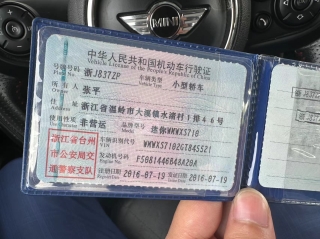 MINI
中华人民共和国机动车行驶证
Vehicle License of the People's Republic of China
号牌号码 浙J837ZP 车辆类型 小型轿车
Plate No. Vehicle Type
所有人 张平
Owner
住址 浙江省温岭市大溪镇水浦村1排46号
Address
使用性质 非营运 品牌型号 迷你WMWXS710
Use Character Model
浙江省台州市公安局交通警察支队
车辆识别代号 WMWXS7102GT845521
VIN
发动机号码 F5081446B48A20A
Engine No.
注册日期 2016-07-19 发证日期 2016-07-19
Register Date Issue Date